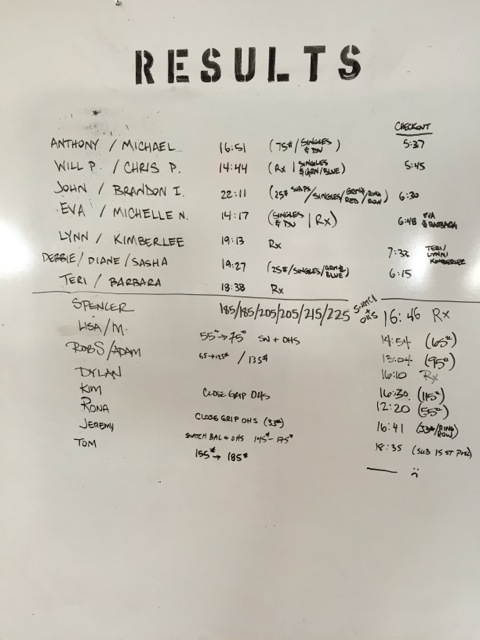 RESULTS
CHECKOUT
ANTHONY / MICHAEL 16:51 (75# / SINGLES & DU) 5:37
WILL P. / CHRIS P. 14:44 (RX | SINGLES & GRN/BLUE) 5:45
JOHN / BRANDON I. 22:11 (25# SWAPS / SINGLES / GRN & RED / RING ROW) 6:30
EVA / MICHELLE N. 14:17 (SINGLES & DU | RX) 6:48 EVA & BARBARA
LYNN / KIMBERLEE 19:13 RX 7:32 TERI / LYNN / KIMBERLEE
DEBBIE / DIANE / SASHA 19:27 (25# / SINGLES / GRN & BLUE) 6:15
TERI / BARBARA 18:38 RX
SPENCER 185/185/205/205/215/225 OHS 16:46 RX
LISA / M. 55#→75# SN + OHS 14:54 (65#)
ROB S / ADAM / 135# 13:04 (95#)
DYLAN 16:10 RX
KIM CLOSE GRIP OHS 16:30 (115#)
RONA CLOSE GRIP OHS (33#) 12:20 (55#)
JEREMY SNATCH BAL + OHS 145#-175# 16:41 (33#/RING ROW)
TOM 155#→185# 18:35 (SUB 15 ST PULL)